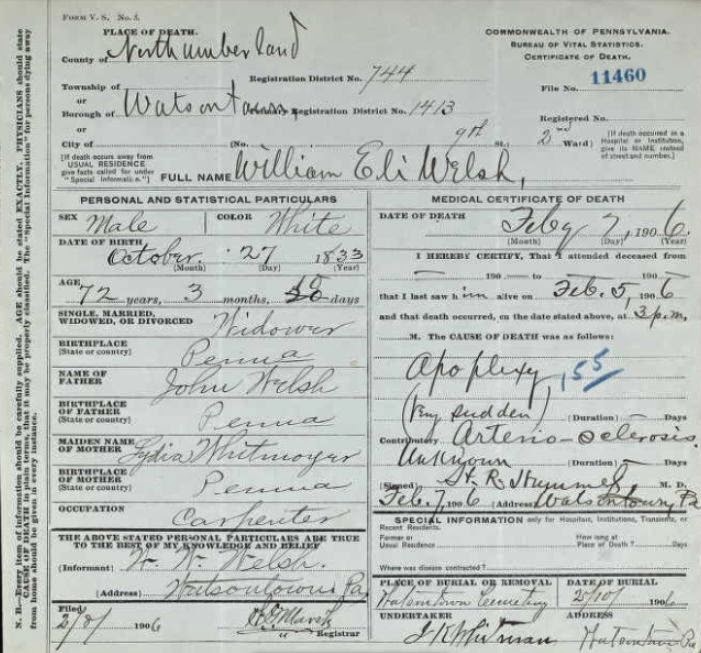 FORM V. S. No. 5.
PLACE OF DEATH.
County of Northumberland
Township of
or
Borough of Watsontown,
or
City of
Registration District No. 744
Registration District No. 1413
(No. 9th St.; 2nd Ward)
COMMONWEALTH OF PENNSYLVANIA.
BUREAU OF VITAL STATISTICS.
CERTIFICATE OF DEATH.
File No. 11460
Registered No.
[If death occurred in a
Hospital or Institution,
give its NAME instead
of street and number.]
[If death occurs away from
USUAL RESIDENCE
give facts called for under
"Special Information."]
FULL NAME William Eli Welsh,
PERSONAL AND STATISTICAL PARTICULARS
SEX Male COLOR White
DATE OF BIRTH
October 27 1833
(Month) (Day) (Year)
AGE
72 years, 3 months, days
SINGLE, MARRIED,
WIDOWED, OR DIVORCED Widower
BIRTHPLACE
(State or country) Penna
NAME OF
FATHER John Welsh
BIRTHPLACE
OF FATHER
(State or country) Penna
MAIDEN NAME
OF MOTHER Lydia Whitmoyer
BIRTHPLACE
OF MOTHER
(State or country) Penna
OCCUPATION
Carpenter
THE ABOVE STATED PERSONAL PARTICULARS ARE TRUE
TO THE BEST OF MY KNOWLEDGE AND BELIEF
(Informant) W. W. Welsh.
(Address) Watsontown Pa
Filed
2/8/ 1906
Registrar
MEDICAL CERTIFICATE OF DEATH
DATE OF DEATH Feby 7, 1906.
(Month) (Day) (Year)
I HEREBY CERTIFY, That I attended deceased from
— 190 — to — 190 —
that I last saw him alive on Feb. 5, 1906
and that death occurred, on the date stated above, at 3 p.m.
M. The CAUSE OF DEATH was as follows:
Apoplexy, 155
(Very sudden) (Duration) Days
Contributory Arterio-sclerosis.
Unknown (Duration) Days
(Signed) H. R. Hummel M. D.
Feb. 7, 1906 (Address) Watsontown, Pa
SPECIAL INFORMATION only for Hospitals, Institutions, Transients, or
Recent Residents.
Former or
Usual Residence
How long at
Place of Death? Days
Where was disease contracted?
PLACE OF BURIAL OR REMOVAL DATE OF BURIAL
Watsontown Cemetery 2/10/ 1906
UNDERTAKER ADDRESS
J K Whitman Watsontown Pa
N. B.—Every item of information should be carefully supplied. AGE should be stated EXACTLY. PHYSICIANS should state
CAUSE OF DEATH in plain terms, that it may be properly classified. The "Special Information" for persons dying away
from home should be given in every instance.